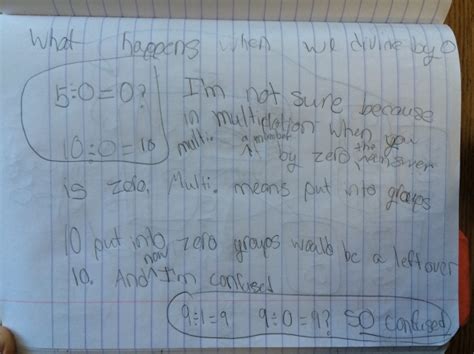 What happens when we divine by 0
5÷0=0?
10÷0=10
I'm not sure because
in multiplation when you
multi. a number by zero, the answer
is zoro. Multi. means put into groups
10 put into zero groups would be a leftover
10. And now I'm confused
9÷1=9 9÷0=9? SO confused